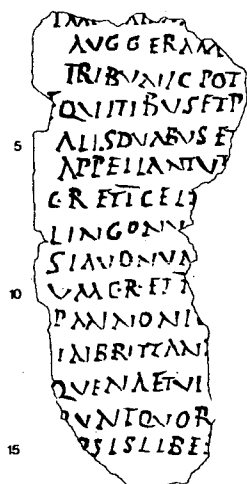 AVG GERMA
TRIBVNIC POT
QVITIBVS ET P
5 ALIS DVABVS E
APPELLANTV
C·R·ET I CEL
LINGONV
SIAVONVM
10 VM C·R·ET T
PANNONI
IN BRITTAN
QVE NA ET VI
RVNT QVOR
15 PSIS LIBE